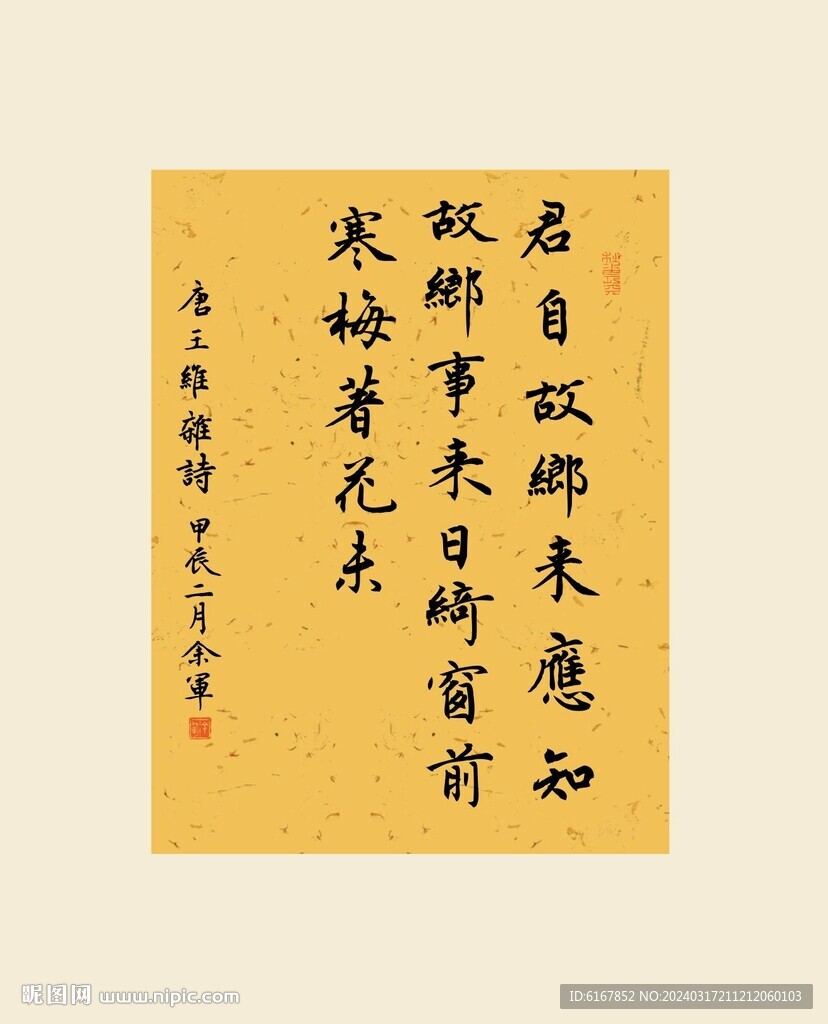 君自故鄉来應知
故鄉事来日綺窗前
寒梅著花未
唐王維雜詩 甲辰二月余軍
昵图网 www.nipic.com
ID:6167852 NO:20240317211212060103